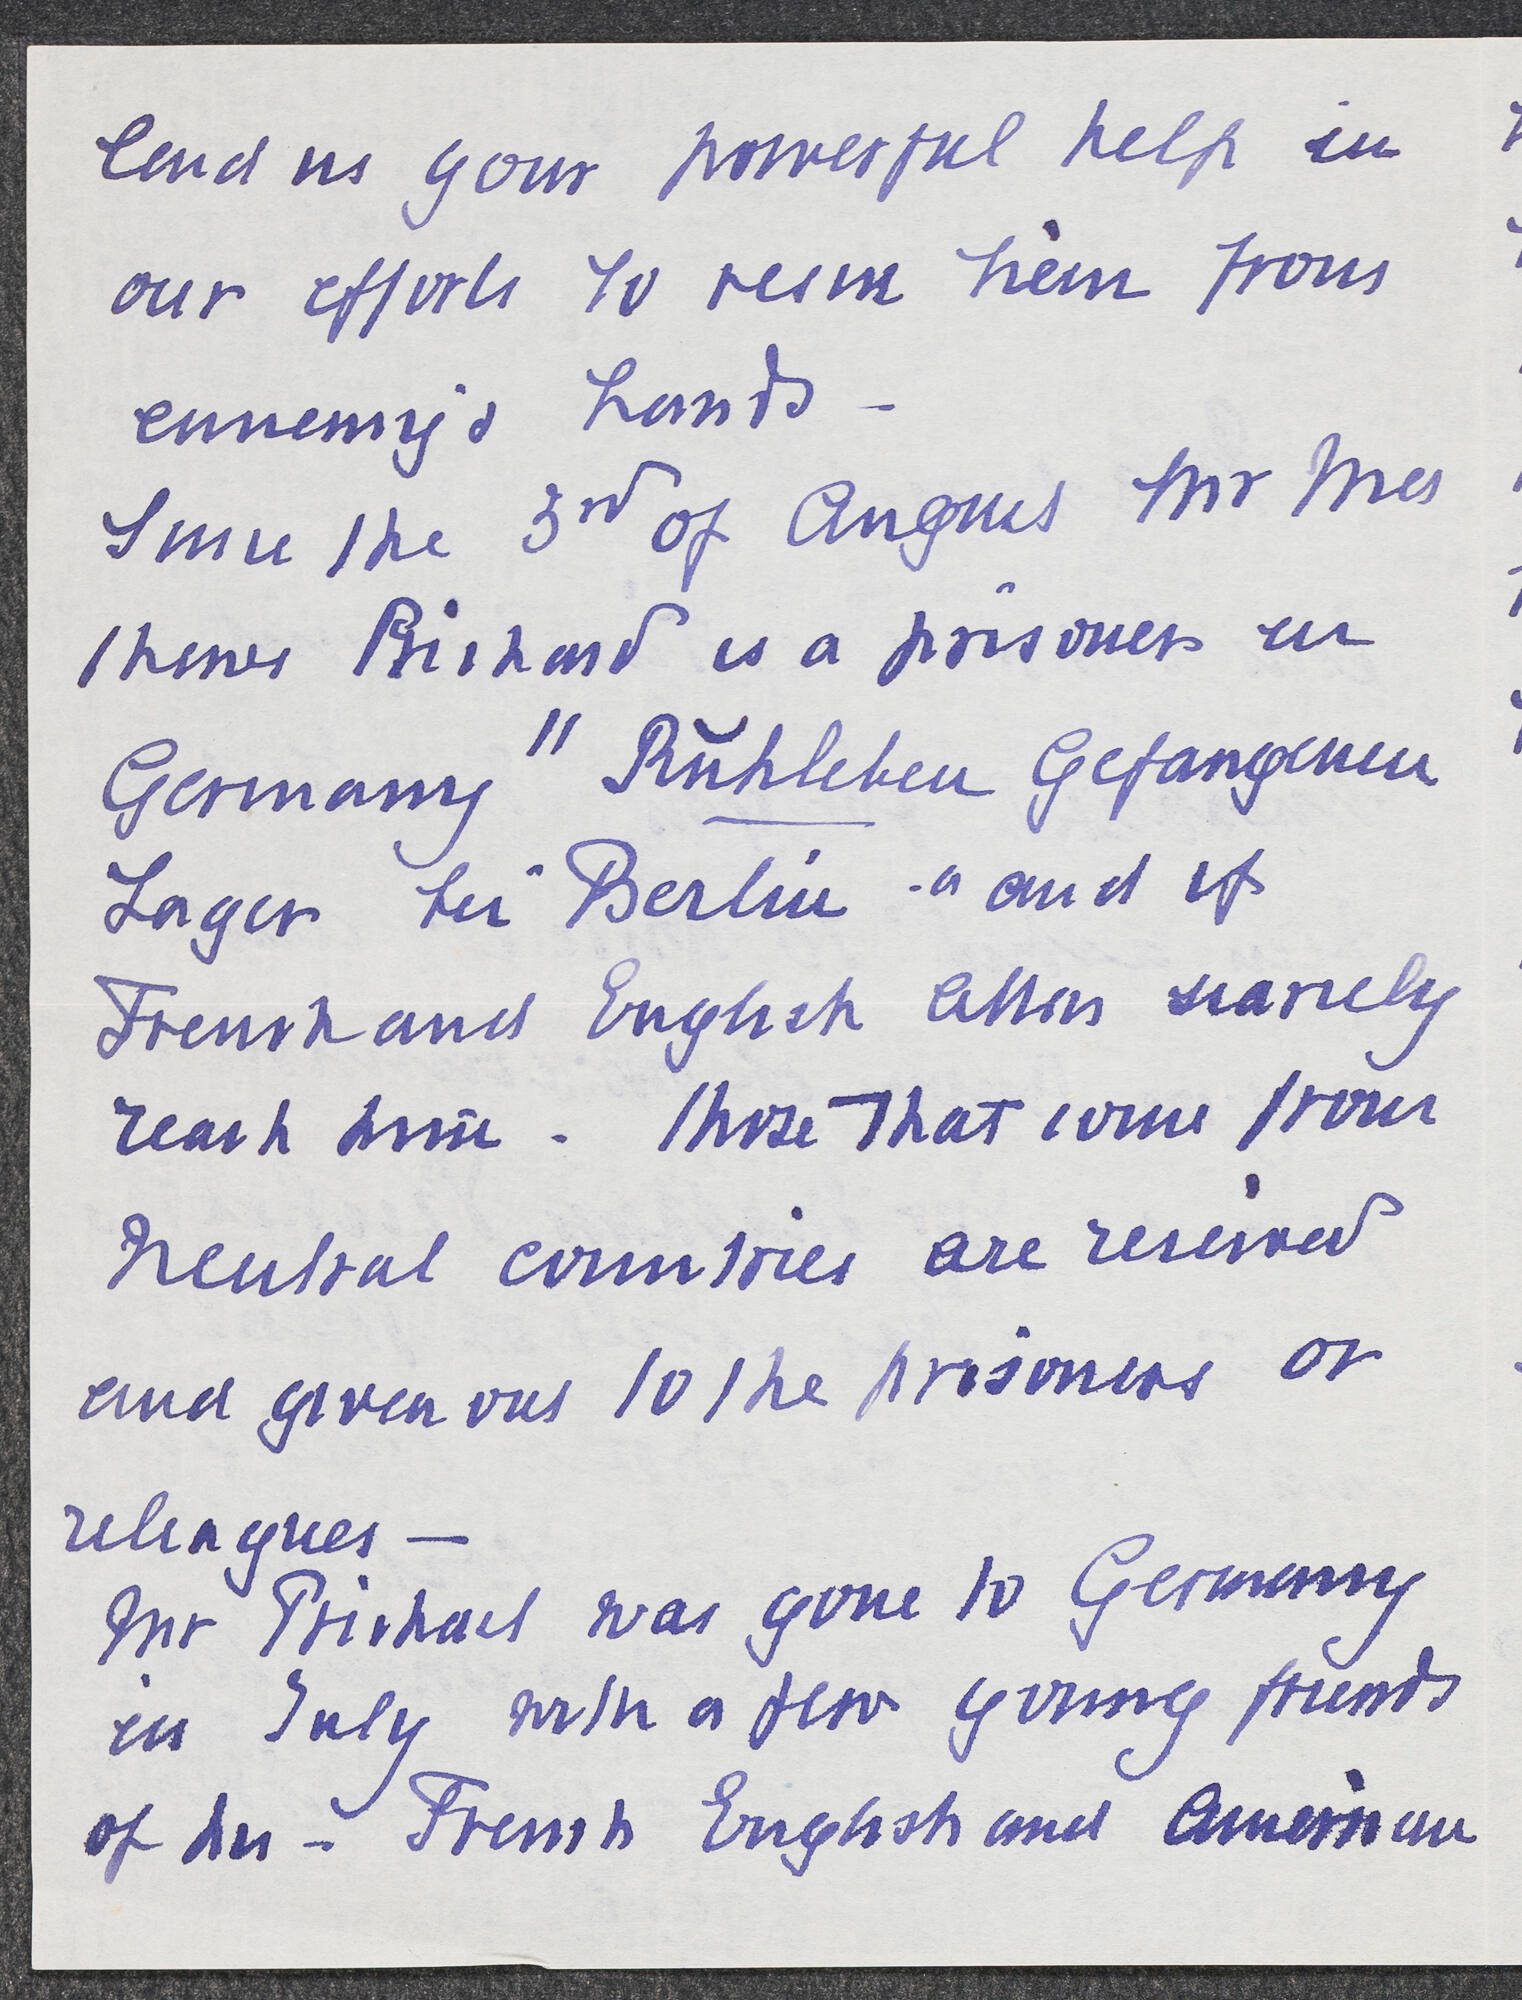 lend us your powerful help in
our efforts to rescue him from
ennemy's hands -
Since the 3rd of August Mr Mat
thews Prichard is a prisoner in
Germany " Rŭhleben Gefangenen
Lager bei Berlin -" and if
French and English letters scarcely
reach him - those that come from
Neutral countries are received
and given out to the prisoners or
Mr Prichard was gone to Germany
in July with a few young friends
of his - French English and American